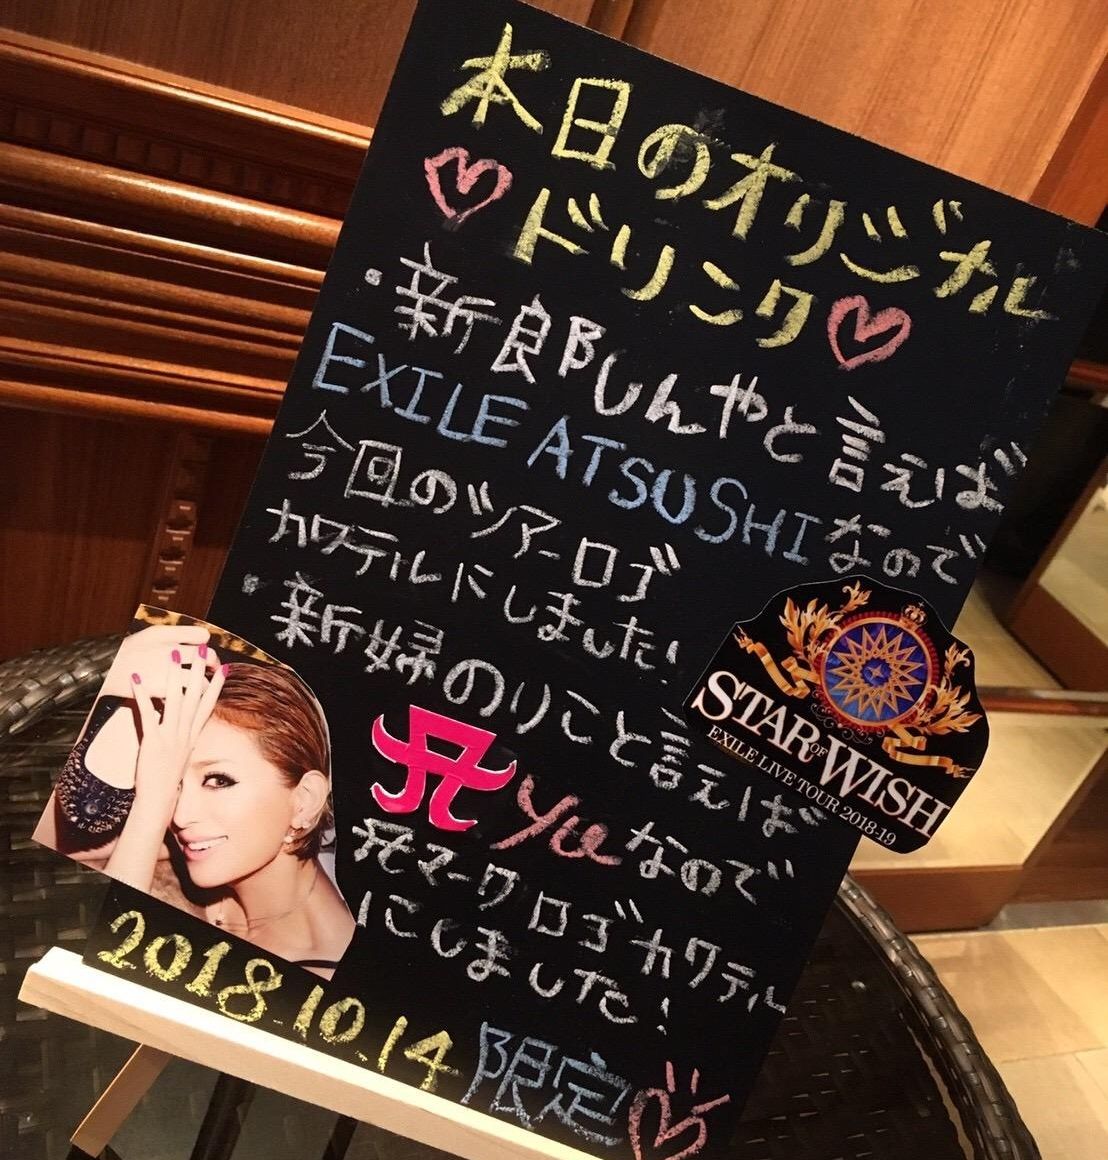 本日のオリジナル
♡ドリンク♡
・新郎しんやと言えば
EXILE ATSUSHIなので
今回のツアーロゴ
カクテルにしました!
・新婦のりこと言えば
yuなので
マークロゴカクテル
にしました!
STAR OF WISH
EXILE LIVE TOUR 2018-19
2018.10.14 限定